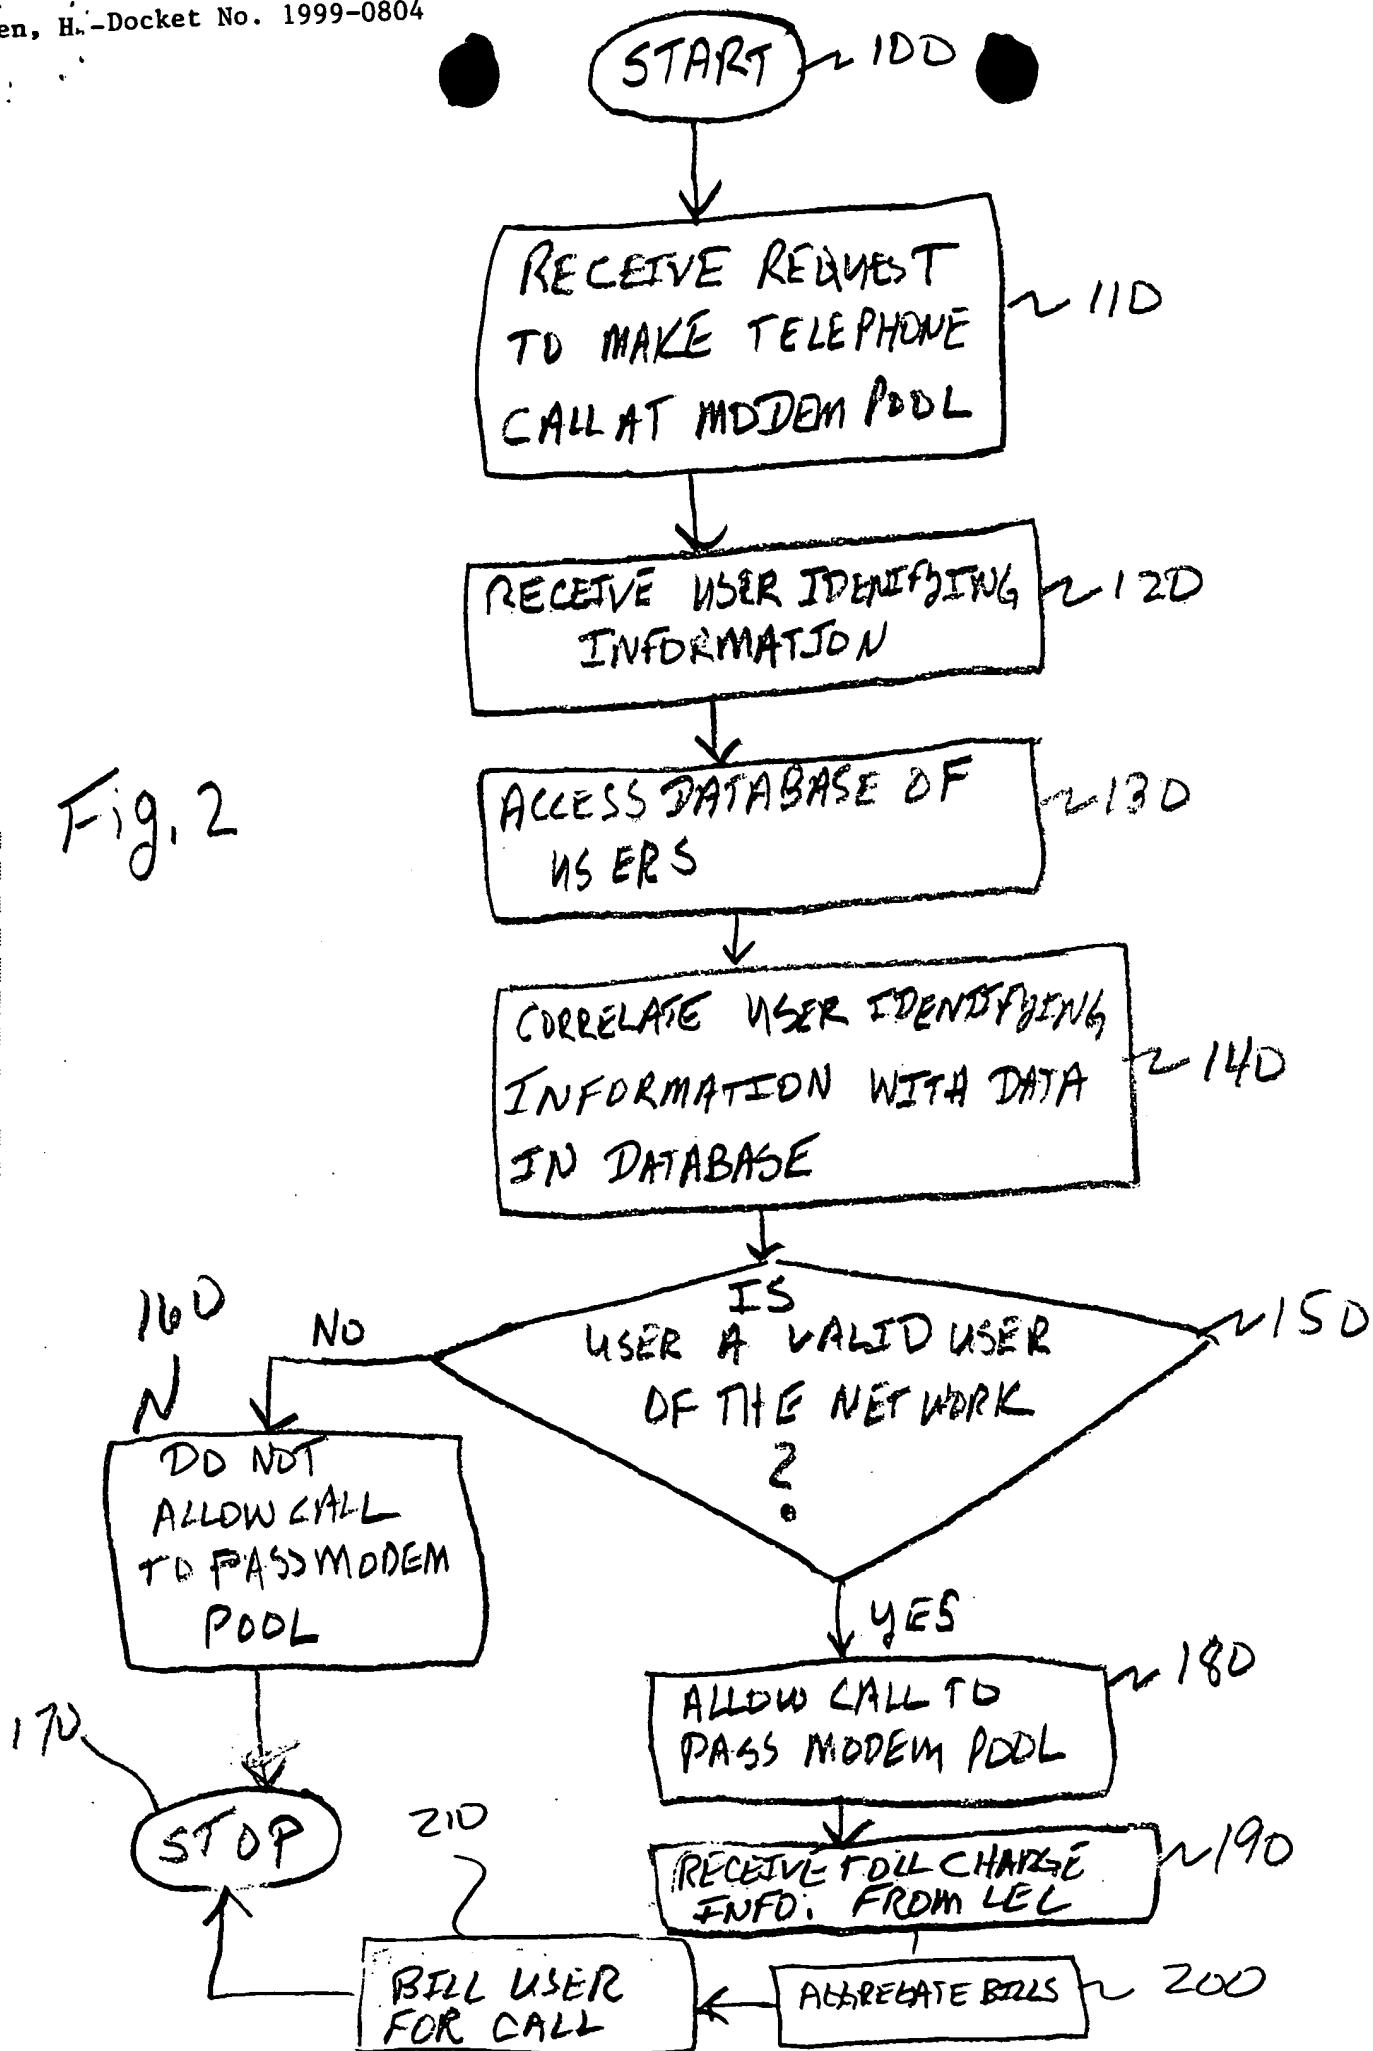 en, H.-Docket No. 1999-0804
START
100
RECEIVE REQUEST
TO MAKE TELEPHONE
CALL AT MODEM POOL
110
RECEIVE USER IDENIFYING
INFORMATION
120
Fig. 2
ACCESS DATABASE OF
USERS
130
CORRELATE USER IDENTIFYING
INFORMATION WITH DATA
IN DATABASE
140
IS
USER A VALID USER
OF THE NETWORK
?
150
NO
160
DO NOT
ALLOW CALL
TO PASS MODEM
POOL
YES
ALLOW CALL TO
PASS MODEM POOL
180
170
STOP
RECEIVE TOLL CHARGE
INFO. FROM LEC
190
210
BILL USER
FOR CALL
AGGREGATE BILLS
200